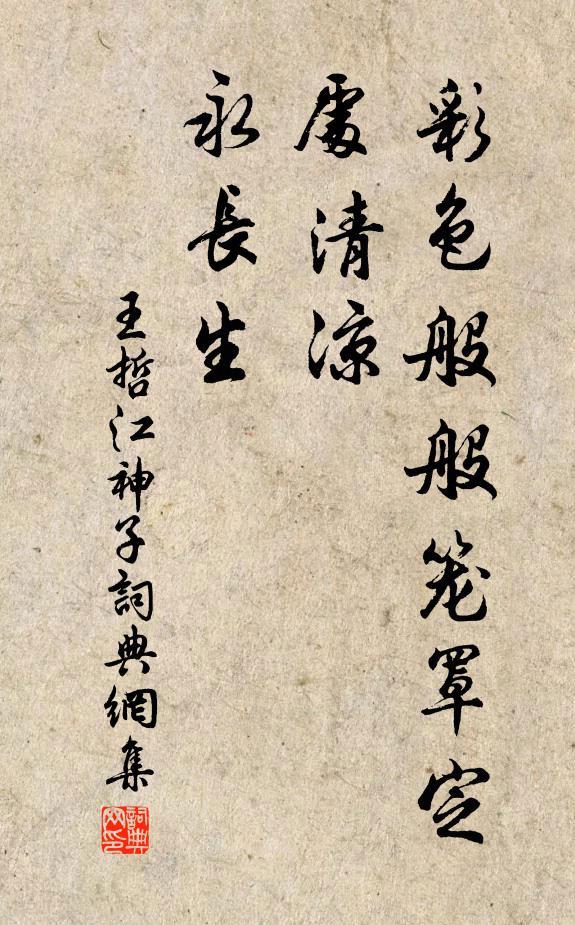 彩色般般笼罩定
處清凉
永長生
王哲江神子詞典網集
詞典网印